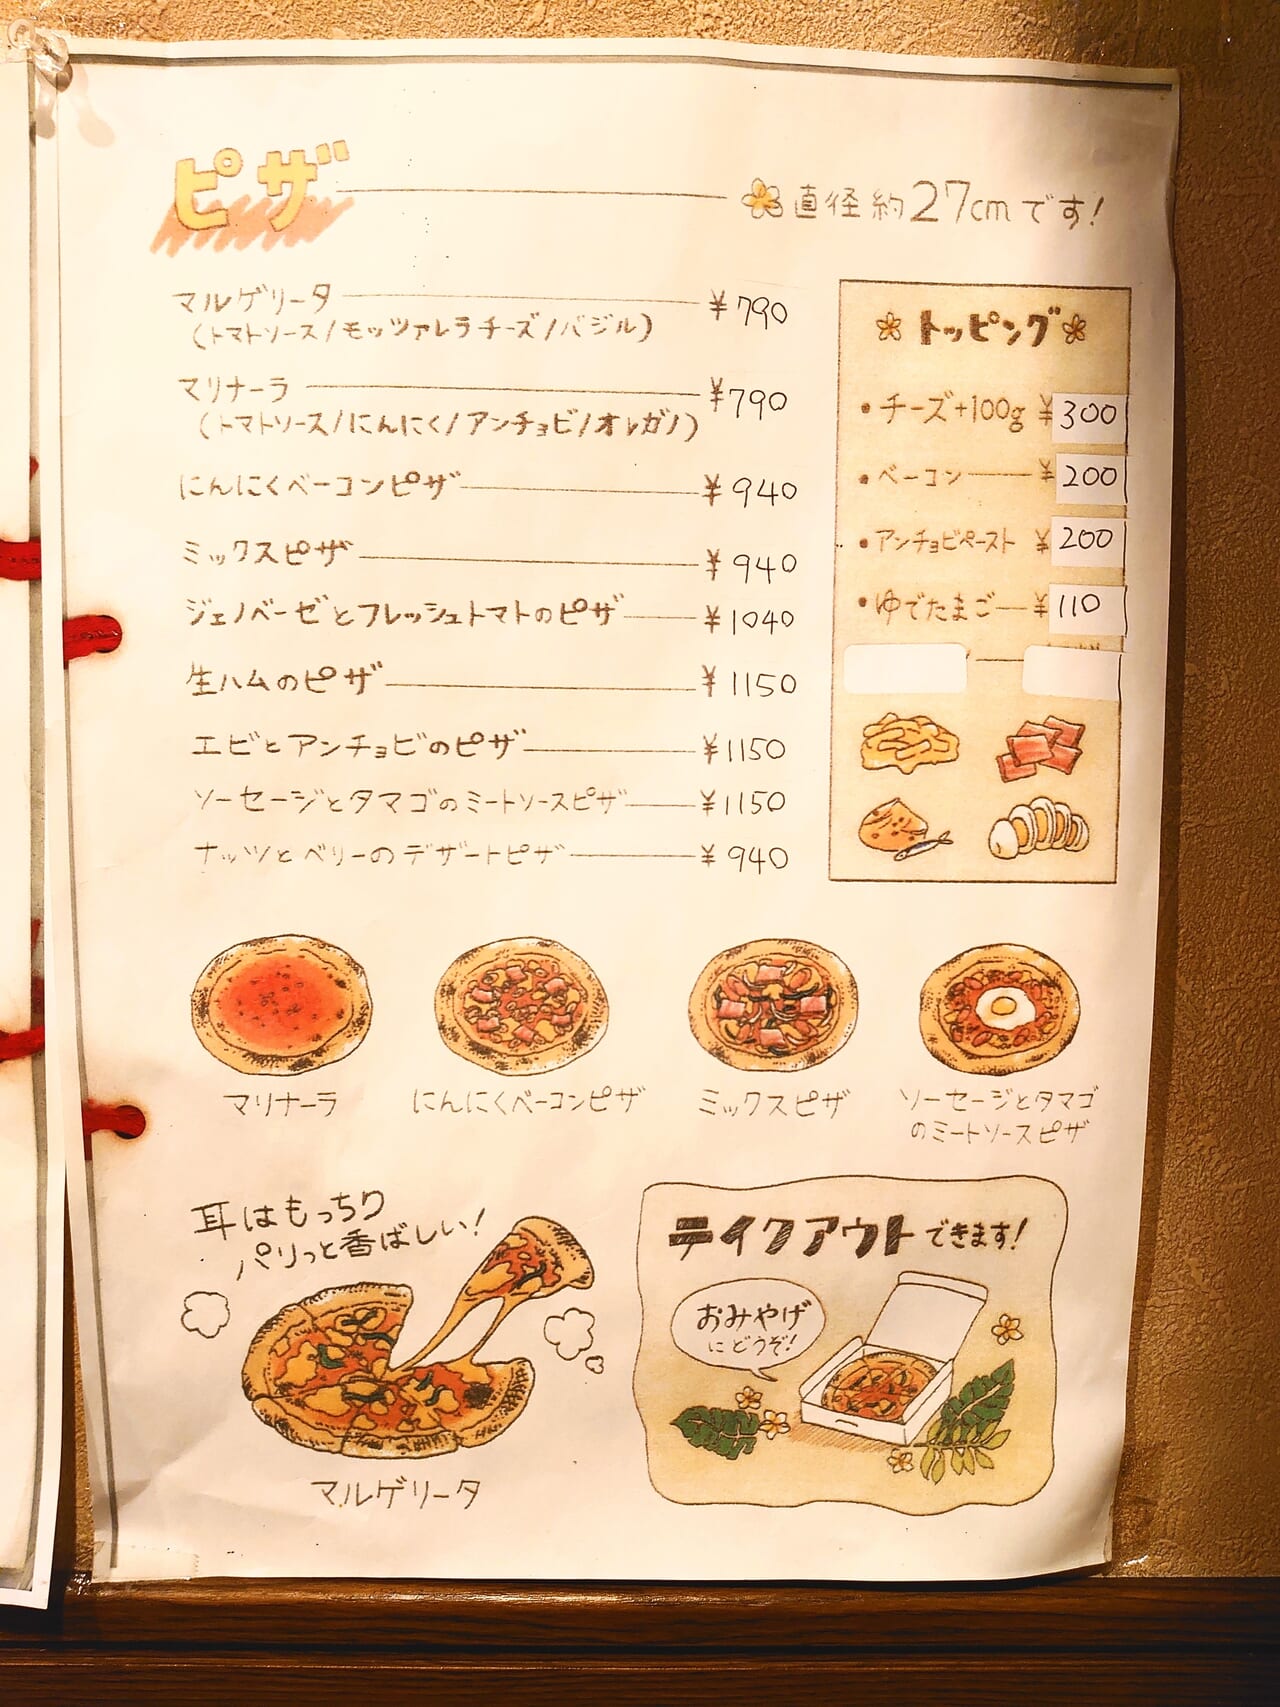 ピザ
直径約27cmです!
マルゲリータ ¥790
(トマトソース/モッツァレラチーズ/バジル)
マリナーラ ¥790
(トマトソース/にんにく/アンチョビ/オレガノ)
にんにくベーコンピザ ¥940
ミックスピザ ¥940
ジェノベーゼとフレッシュトマトのピザ ¥1040
生ハムのピザ ¥1150
エビとアンチョビのピザ ¥1150
ソーセージとタマゴのミートソースピザ ¥1150
ナッツとベリーのデザートピザ ¥940
トッピング
・チーズ+100g ¥300
・ベーコン ¥200
・アンチョビペースト ¥200
・ゆでたまご ¥110
マリナーラ
にんにくベーコンピザ
ミックスピザ
ソーセージとタマゴ
のミートソースピザ
耳はもっちり
パリっと香ばしい!
マルゲリータ
テイクアウトできます!
おみやげ
にどうぞ!